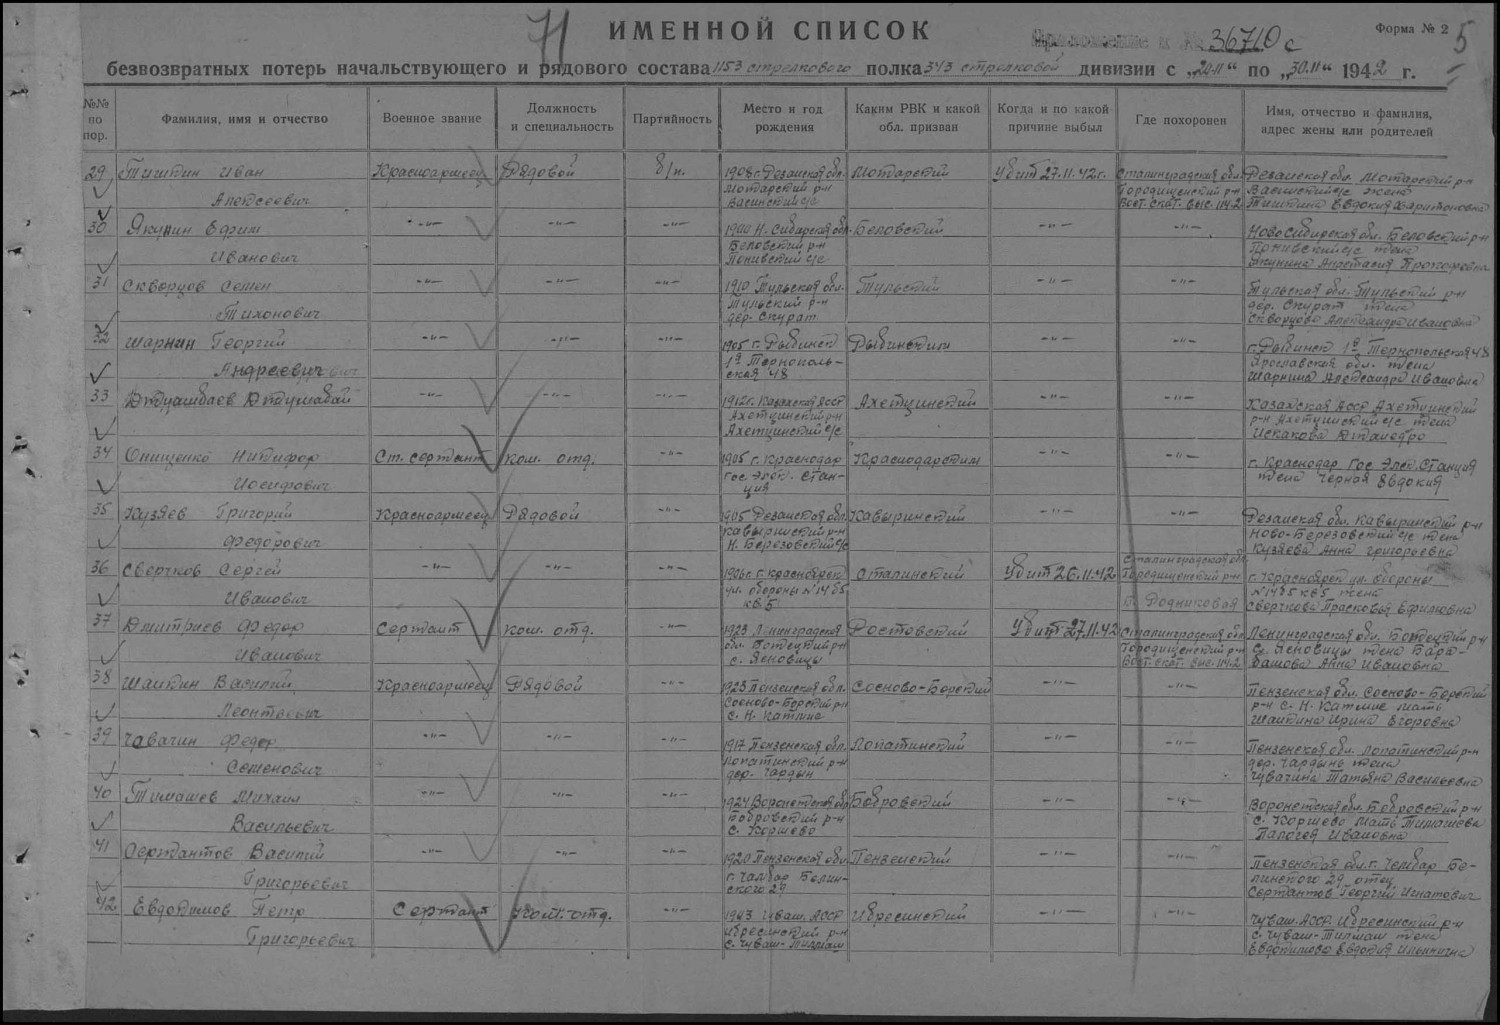 71
ИМЕННОЙ СПИСОК
Приложение к № 36710с
Форма № 2
5
безвозвратных потерь начальствующего и рядового состава 1153 стрелкового полка 343 стрелковой дивизии с „20.11“ по „30.11“ 1942 г.
№№ по пор.
Фамилия, имя и отчество
Военное звание
Должность и специальность
Партийность
Место и год рождения
Каким РВК и какой обл. призван
Когда и по какой причине выбыл
Где похоронен
Имя, отчество и фамилия, адрес жены или родителей
29 Тишкин Иван Красноармеец Рядовой б/п. 1908 г. Рязанская обл. Можарский Убит 27.11.42 г. Сталинградская обл. Рязанская обл. Можарский р-н
Алексеевич Можарский р-н Городищенский р-н жена
с/с Вост. скат. выс. 114.2 Тишкина Евдокия Харитоновна
30 Якунин Ефим -"- -"- -"- 1900 Н. Сибирская обл. Беловский -"- -"- Новосибирская обл. Беловский р-н
Иванович Беловский р-н с/с жена
с/с Якунина Анастасия Прокофьевна
31 Скворцов Семен -"- -"- -"- 1910 Тульская обл. Тульский -"- -"- Тульская обл. Тульский р-н
Тихонович Тульский р-н дер. Скурат жена
дер. Скурат Скворцова Александра Ивановна
32 Шарнин Георгий -"- -"- -"- 1905 г. Рыбинск Рыбинским -"- -"- г. Рыбинск 1я Тернопольская 48
Андреевич 1я Тернополь- Ярославская обл. жена
ская 48 Шарнина Александра Ивановна
33 -"- -"- -"- 1912 г. Казахская АССР -"- -"- Казахская АССР
р-н р-н с/с жена
с/с Искакова
34 Онищенко Никифор Ст. сержант ком. отд. -"- 1905 г. Краснодар Краснодарским -"- -"- г. Краснодар Гос. Элек. Станция
Иосифович Гос. Элек. Стан- жена Черная Евдокия
ция
35 Кузяев Григорий Красноармеец Рядовой -"- 1905 Рязанская обл. -"- -"- Рязанская обл. р-н
Федорович р-н Ново-Березовский с/с жена
Н. Березовский с/с Кузяева Анна Григорьевна
36 Сверчков Сергей -"- -"- -"- 1906 г. г. Красноярск Сталинский Убит 26.11.42 Сталинградская обл. г. Красноярск ул. Обороны
Иванович ул. Обороны № 1485 Городищенский р-н кв 5 жена
кв 5 Б. Родниковая Сверчкова Прасковья Ефимовна
37 Дмитриев Федор Сержант ком. отд. -"- 1923 Ленинградская Ростовский Убит 27.11.42 Сталинградская обл. Ленинградская обл. р-н
Иванович обл. р-н Городищенский р-н с. Ясновицы жена Бара-
с. Ясновицы Вост. скат. выс. 114.2 башова Анна Ивановна
38 Шаткин Василий Красноармеец Рядовой -"- 1923 Пензенская обл. Сосново-Борский -"- -"- Пензенская обл. Сосново-Борский
Леонтьевич Сосново-Борский р-н р-н мать
Ирина Егоровна
39 Чавачин Федор -"- -"- -"- 1917 Пензенская обл. Лопатинский -"- -"- Пензенская обл. Лопатинский р-н
Семенович Лопатинский р-н дер. Чардынь жена
дер. Чардым Чувачина Татьяна Васильевна
40 Тимашев Михаил -"- -"- -"- 1924 Воронежская обл. Бобровский -"- -"- Воронежская обл. Бобровский р-н
Васильевич Бобровский р-н с. Коршево мать Тимашева
с. Коршево Пелагея Ивановна
41 Сержантов Василий -"- -"- -"- 1920 Пензенская обл. Пензенский -"- -"- Пензенская обл. г. Чембар Бе-
Григорьевич г. Чембар Белин- линского 29 отец
ского 29 Сержантов Георгий Игнатович
42 Евдокимов Петр Сержант Ком. отд. -"- Чуваш. АССР Ибресинский -"- -"- Чуваш. АССР Ибресинский р-н
Григорьевич Ибресинский р-н с. Чуваш-Тимяши жена
с. Чуваш-Тимяши Евдокимова Евдокия Ильинична